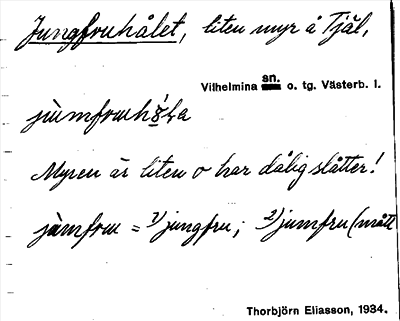 Jungfruhålet, liten myr å Tjäl,
Vilhelmina sn. o. tg. Västerb. l.
Myren är liten o har dålig slåtter!
= 1) jungfru; 2) jumfru (mått
Thorbjörn Eliasson, 1934.